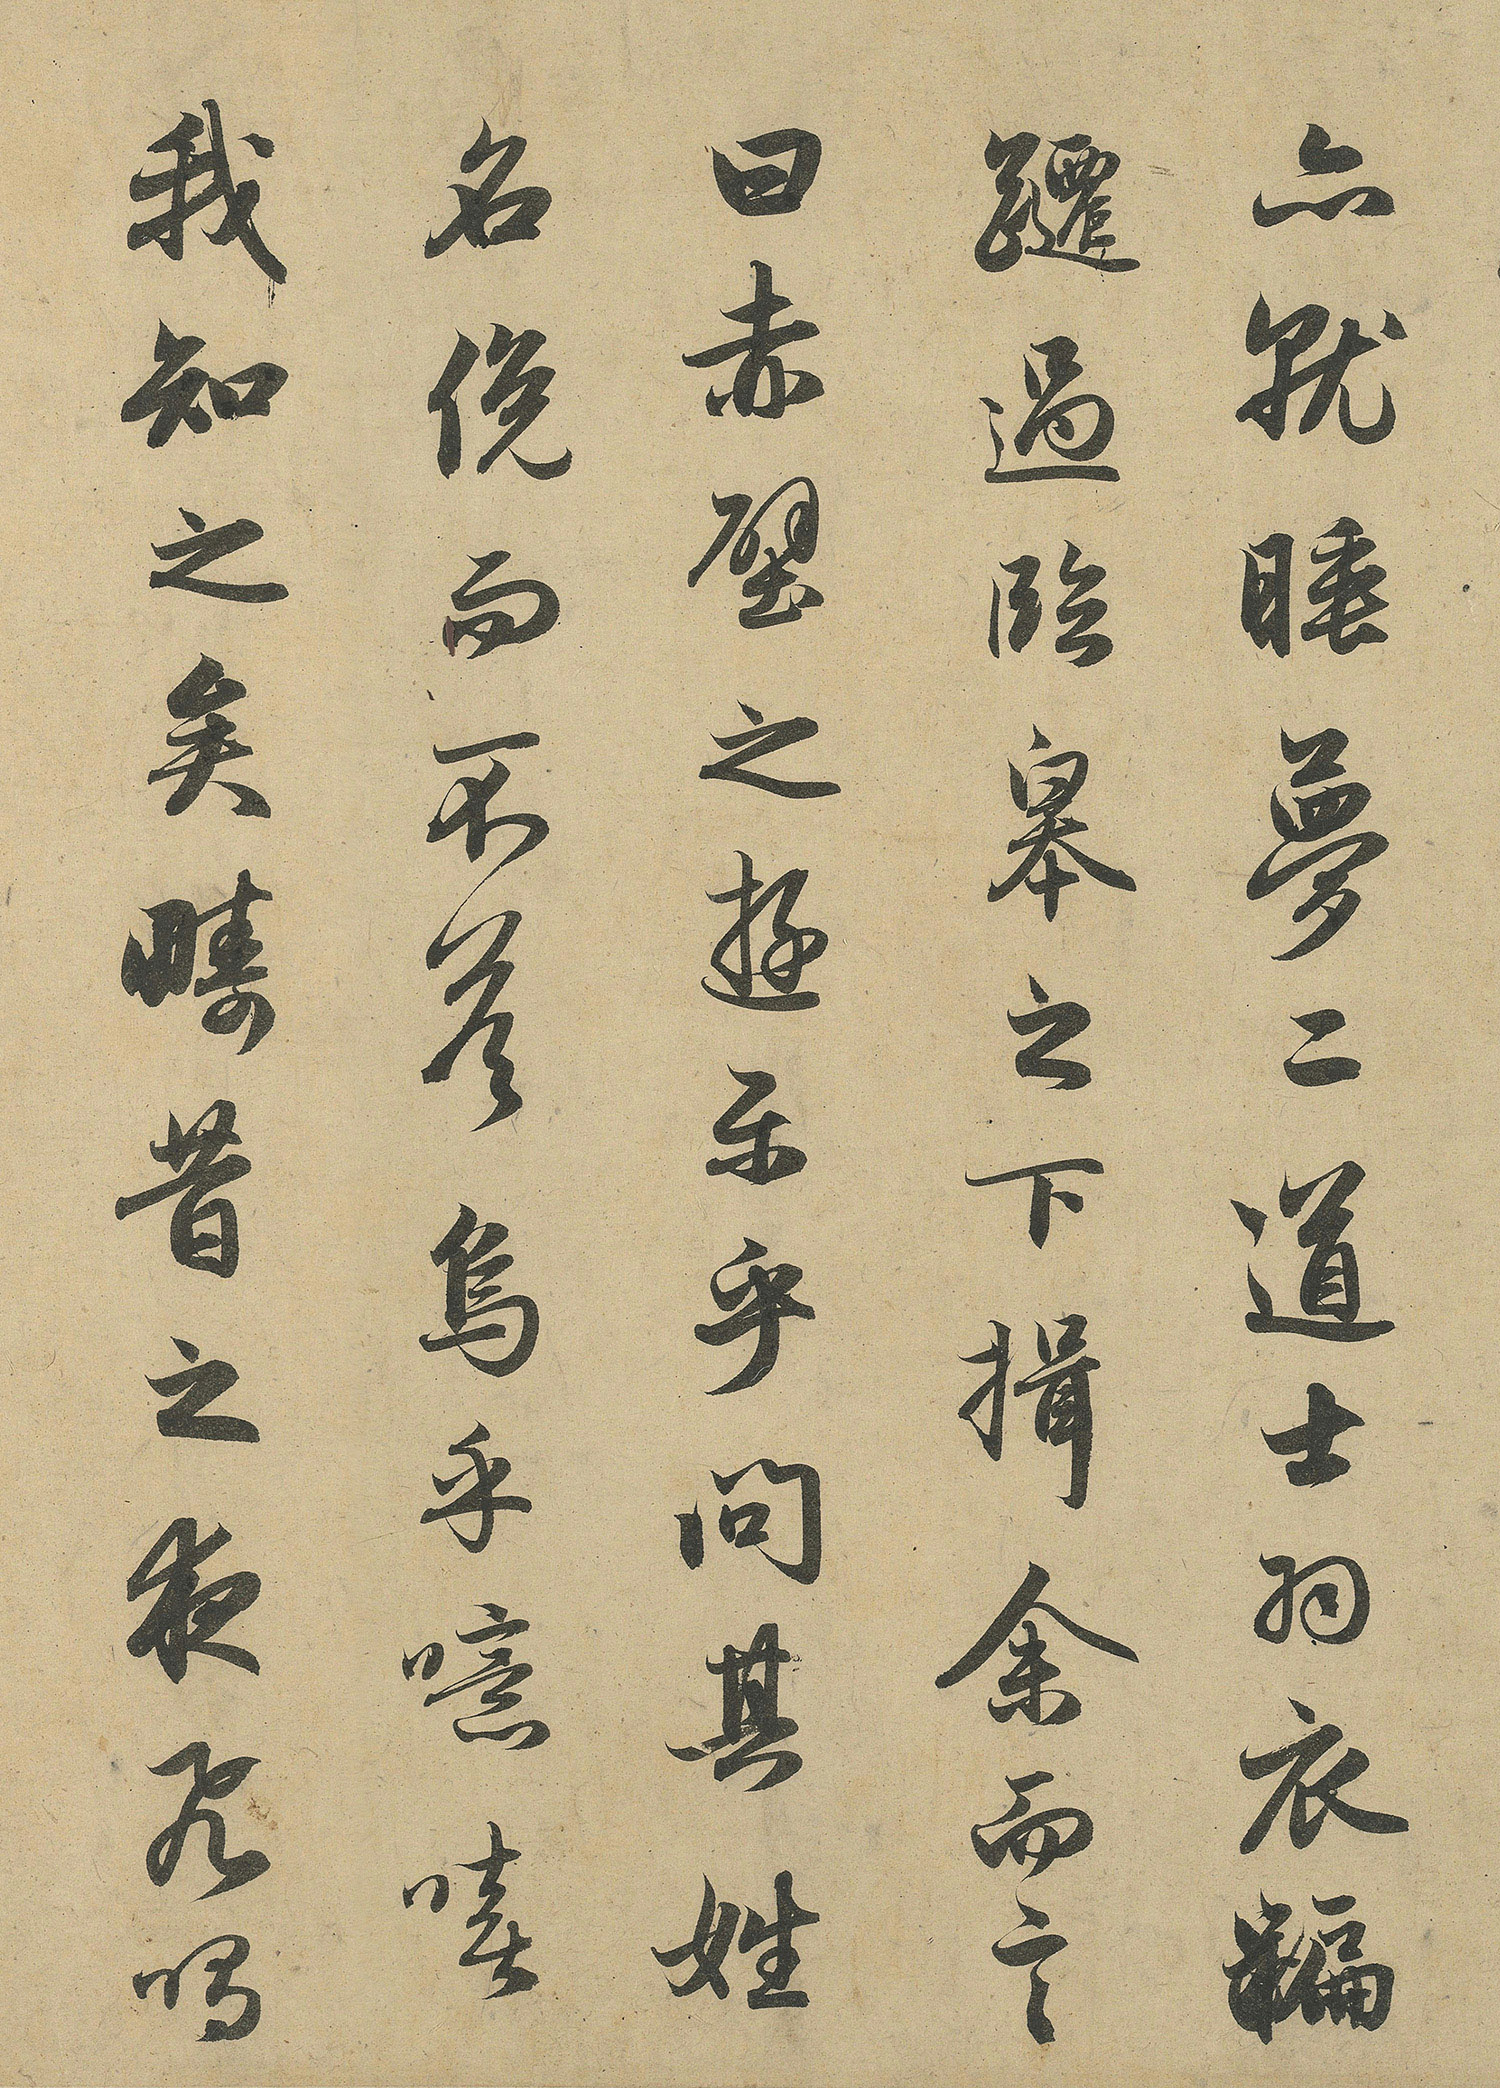 亦就睡夢二道士羽衣翩
躚過臨皋之下揖余而言
曰赤壁之遊樂乎問其姓
名俛而不答烏乎噫嘻
我知之矣疇昔之夜飛鳴